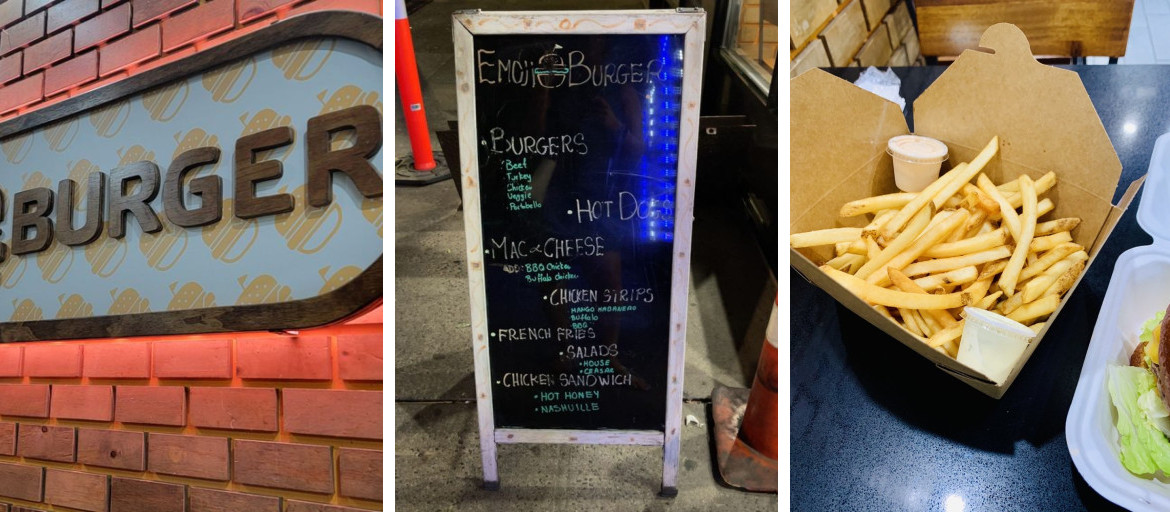 BURGER
EMOJI BURGER
• BURGERS
Beef
Turkey
Chicken
Veggie
Portobello
• HOT DOGS
• MAC & CHEESE
ADD: BBQ Chicken
Buffalo chicken
• CHICKEN STRIPS
MANGO HABANERO
Buffalo
BBQ
• FRENCH FRIES
• SALADS
• HOUSE
• CEASAR
• CHICKEN SANDWICH
• HOT HONEY
• NASHUILLE